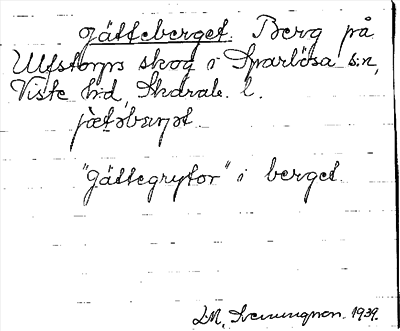 Jätteberget. Berg på
Ulfstorps skog i Sparlösa s:n,
Viste h:d, Skarab. l.
jæt̀əbærjət
"Jättegrytor" i berget.
I.M. Svenungson. 1939.